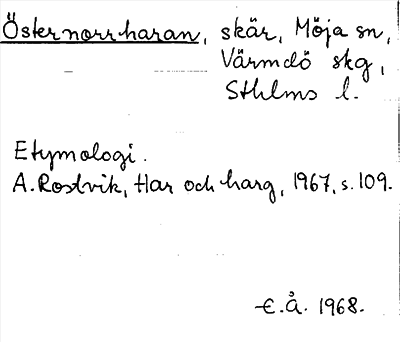 Östernorrharan, skär, Möja sn,
Värmdö skg,
Sthlms l.
Etymologi.
A. Rostvik, Har och harg, 1967, s. 109.
E.Å. 1968.